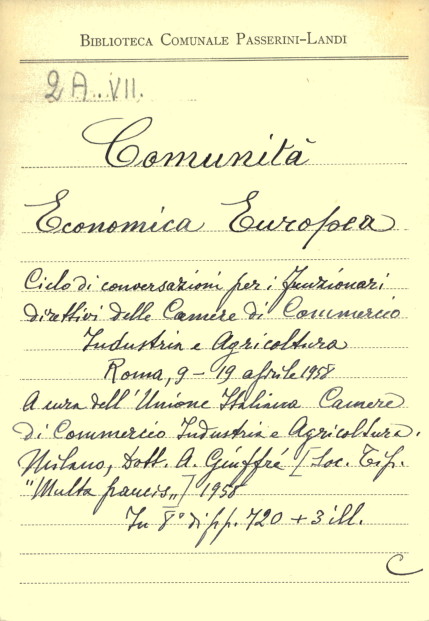 BIBLIOTECA COMUNALE PASSERINI-LANDI
2 A. VII.
Comunità
Economica Europea
Ciclo di conversazioni per i funzionari
direttivi delle Camere di Commercio
Industria e Agricoltura
Roma, 9 - 19 aprile 1958
A cura dell'Unione Italiana Camere
di Commercio Industria e Agricoltura.
Milano, Dott. A. Giuffré [Soc. Tip.
"Multa paucis„] 1958
In 8° di pp. 720 + 3 ill.
C